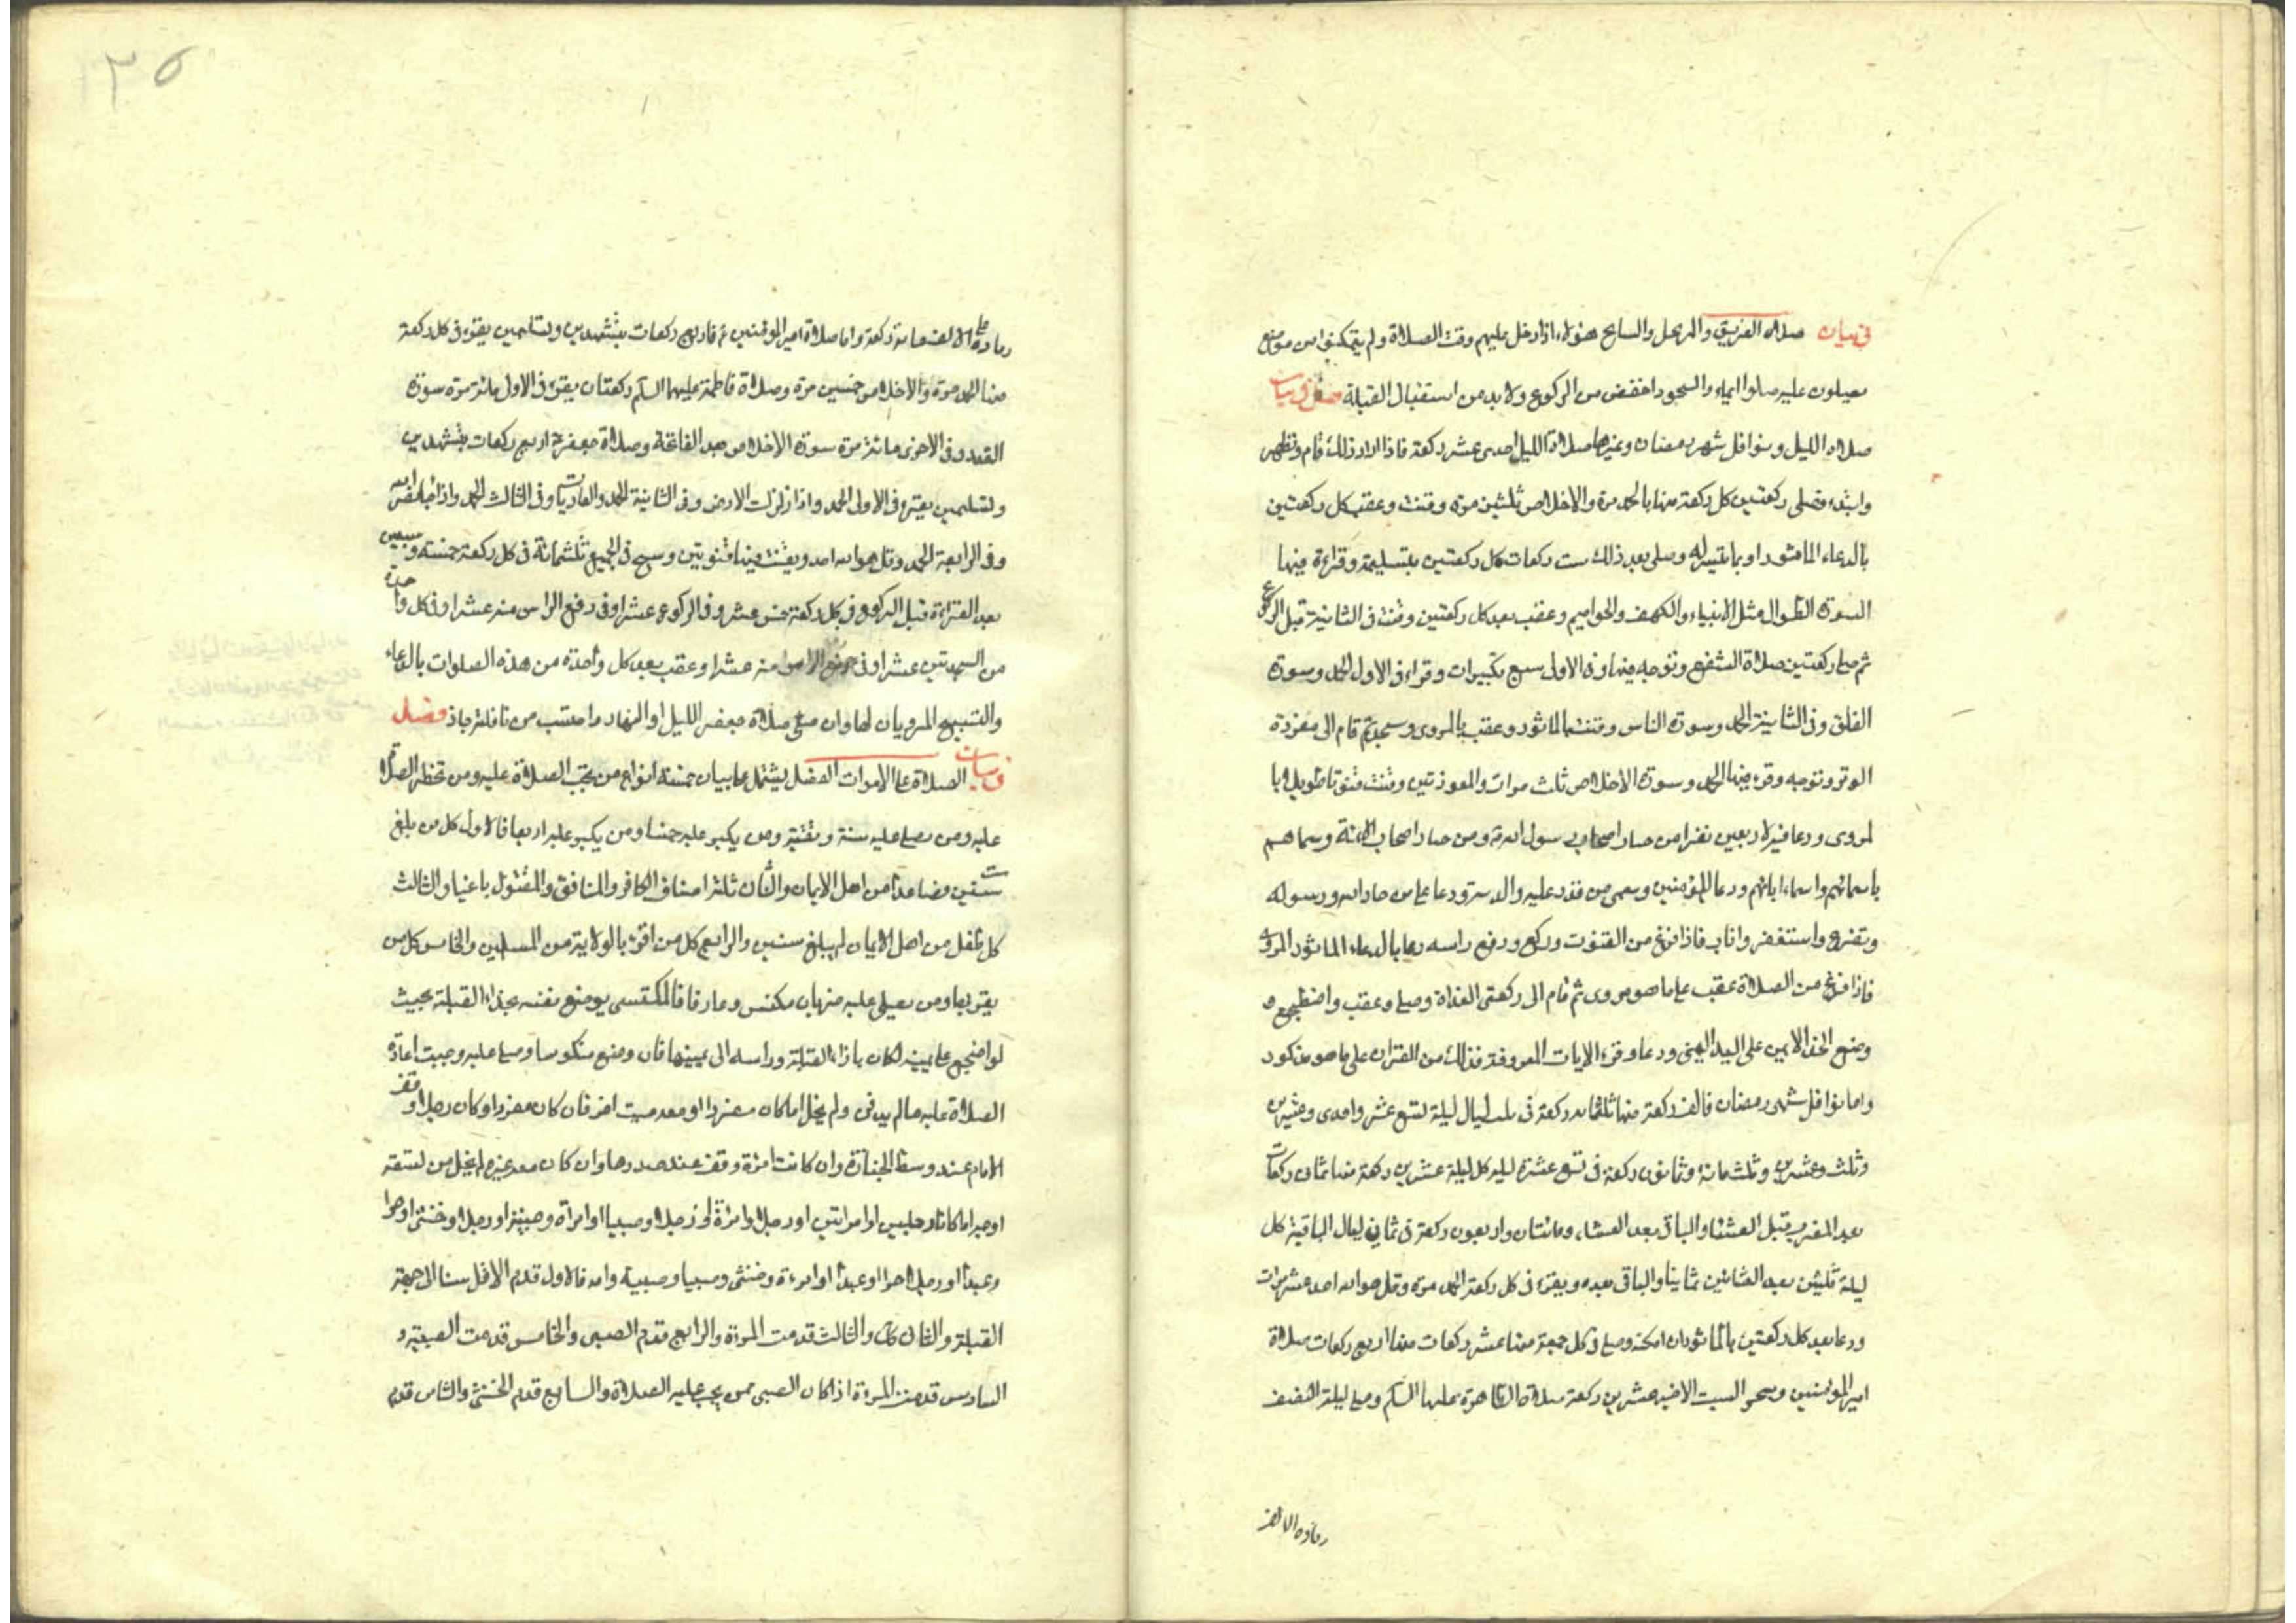 في بيان صلاة الغريق والموحل والسابح هؤلاء اذا دخل عليهم وقت الصلاة ولم يتمكنوا من موضع
يصلون عليه صلوا ايماء والسجود اخفض من الركوع ولا بد من استقبال القبلة فصل في بيان
صلاة الليل ونوافل شهر رمضان وغيرها صلاة الليل احدى عشر ركعة فاذا اراد ذلك قام وتطهر
وابتدء وصلى ركعتين كل ركعة منها بالحمد مرة والاخلاص ثلثين مرة وقنت وعقب كل ركعتين
بالدعاء الماثور او بما تيسر له وصلى بعد ذلك ست ركعات كل ركعتين بتسليمة وقراءة فيها
السورة الطوال مثل الانبياء والكهف والحواميم وعقب بعد كل ركعتين وقنت في الثانية قبل الركوع
ثم صلى ركعتين صلاة الشفع وتوجه فيها وفي الاولى سبع تكبيرات وقراء في الاول الحمد وسورة
الفلق وفي الثانية الحمد وسورة الناس وقنت بالماثور وعقب بالمروى وسجد ثم قام الى مفردة
الوتر وتوجه وقرء فيها الحمد وسورة الاخلاص ثلث مرات والمعوذتين وقنت قنوتا طويلا با
لمروى ودعا فيه لاربعين نفرا من خيار اصحاب رسول الله ومن خيار اصحاب الائمة وسماهم
باسمائهم واسماء ابائهم ودعا للمؤمنين وسمى من قدر عليه والد ستر ودعا على من حاد الله ورسوله
وتضرع واستغفر واناب فاذا فرغ من القنوت وركع ورفع راسه دعا بالدعاء الماثور المروى
فاذا فرغ من الصلاة عقب على ما هو مروى ثم قام الى ركعتى الغداة وصلى وعقب واضطجع و
وضع الخد الايمن على اليد اليمنى ودعا وقرء الايات المعروفة فذلك من القران على ما هو مذكور
واما نوافل شهر رمضان فالف ركعة منها ثلثمائه ركعة في ثلث ليال ليلة تسع عشر واحدى وعشرين
وثلث وعشرين وثلث مائة وثمانون ركعة في تسع عشرة ليلة كل ليلة عشرين ركعة منها ثمان ركعات
بعد المغرب قبل العشاء والباقي بعد العشاء ومائتان واربعون ركعة في ثماني ليال الباقية كل
ليلة ثلثين بعد العشائين ثمانيا والباقى بعده ويقرء في كل ركعة الحمد مرة وقل هو الله احد عشر مرات
ودعا بعد كل ركعتين بالماثور ان امكنه وصلى في كل جمعة منها عشر ركعات منها اربع ركعات صلاة
امير المؤمنين وسحر السبت الاخير عشرين ركعة صلاة الطاهرة عليها السلم وصلى ليلة النصف
زيادة الالف
زيادة على الالف مائة ركعة واما صلاة امير المؤمنين ع فاربع ركعات بتشهدين وتسليمين يقرء في كل ركعة
منها الحمد مرة والاخلاص خمسين مرة وصلاة فاطمة عليها السلم ركعتان يقرء في الاولى مائة مرة سورة
القدر وفي الاخرى مائة مرة سورة الاخلاص بعد الفاتحة وصلاة جعفر اربع ركعات بتشهدين
وتسليمين يقرء في الاولى الحمد واذا زلزلت الارض وفي الثانية الحمد والعاديات وفي الثالث الحمد واذا جاء نصر الله
وفي الرابعة الحمد وقل هو الله احد ويقنت فيها قنوتين وسبح في الجميع ثلثمائة في كل ركعة خمسة وسبعين
بعد القراءة قبل الركوع في كل ركعة خمس عشر وفي الركوع عشرا وفي رفع الراس منه عشرا وفي كل واحدة
من السجدتين عشرا وفي رفع الراس منه عشرا وعقب بعد كل واحدة من هذه الصلوات بالدعاء
والتسبيح المرويان لها وان صلى صلاة جعفر الليل او النهار واحتسب من نافلته جاز فصل
في بيان الصلاة على الاموات الفصل يشتمل على بيان خمسة انواع من يجب الصلاة عليه ومن تحظر الصلاة
عليه ومن يصلى عليه سنة وتقية ومن يكبر عليه خمسا ومن يكبر عليه اربعا فالاول كل من بلغ
ست سنين فصاعدا من اهل الايمان والثان ثلثة اصناف الكافر والمنافق والمقتول باغيا والثالث
كل طفل من اهل الايمان لم يبلغ سنين والرابع كل من اقر بالولاية من المسلمين والخامس كل من
يقر بها ومن يصلى عليه ضربان مكتس وعار فالمكتسى يوضع نفسه بحذاء القبلة بحيث
لو اضجع على يمينه لكان بازاء القبلة وراسه الى يمينها فان وضع منكوسا وصلى عليه وجبت اعادة
الصلاة عليه ما لم يدفن ولم يخل اما كان مفردا او معه ميت اخر فان كان مفردا وكان رجلا وقف
الامام عند وسط الجنازة وان كانت امرءة وقف عند صدرها وان كان معه غيره لم يخل من تسعة
اوجه اما كانا رجلين او امراتين او رجل وامرءة او رجل وصبيا او امراة وصبية او رجل وخنثى او حرا
وعبدا او رجل احرا وعبدا او امرءة وخنثى وصبيا وصبية وامة فالاول قدم الافضل سنا الى جهة
القبلة والثان كك والثالث قدمت المرءة والرابع قدم الصبى والخامس قدمت الصبية و
السادس قدمت المرءة اذا كان الصبى ممن يجب عليه الصلاة والسابع قدم الخنثى والثامن قدم